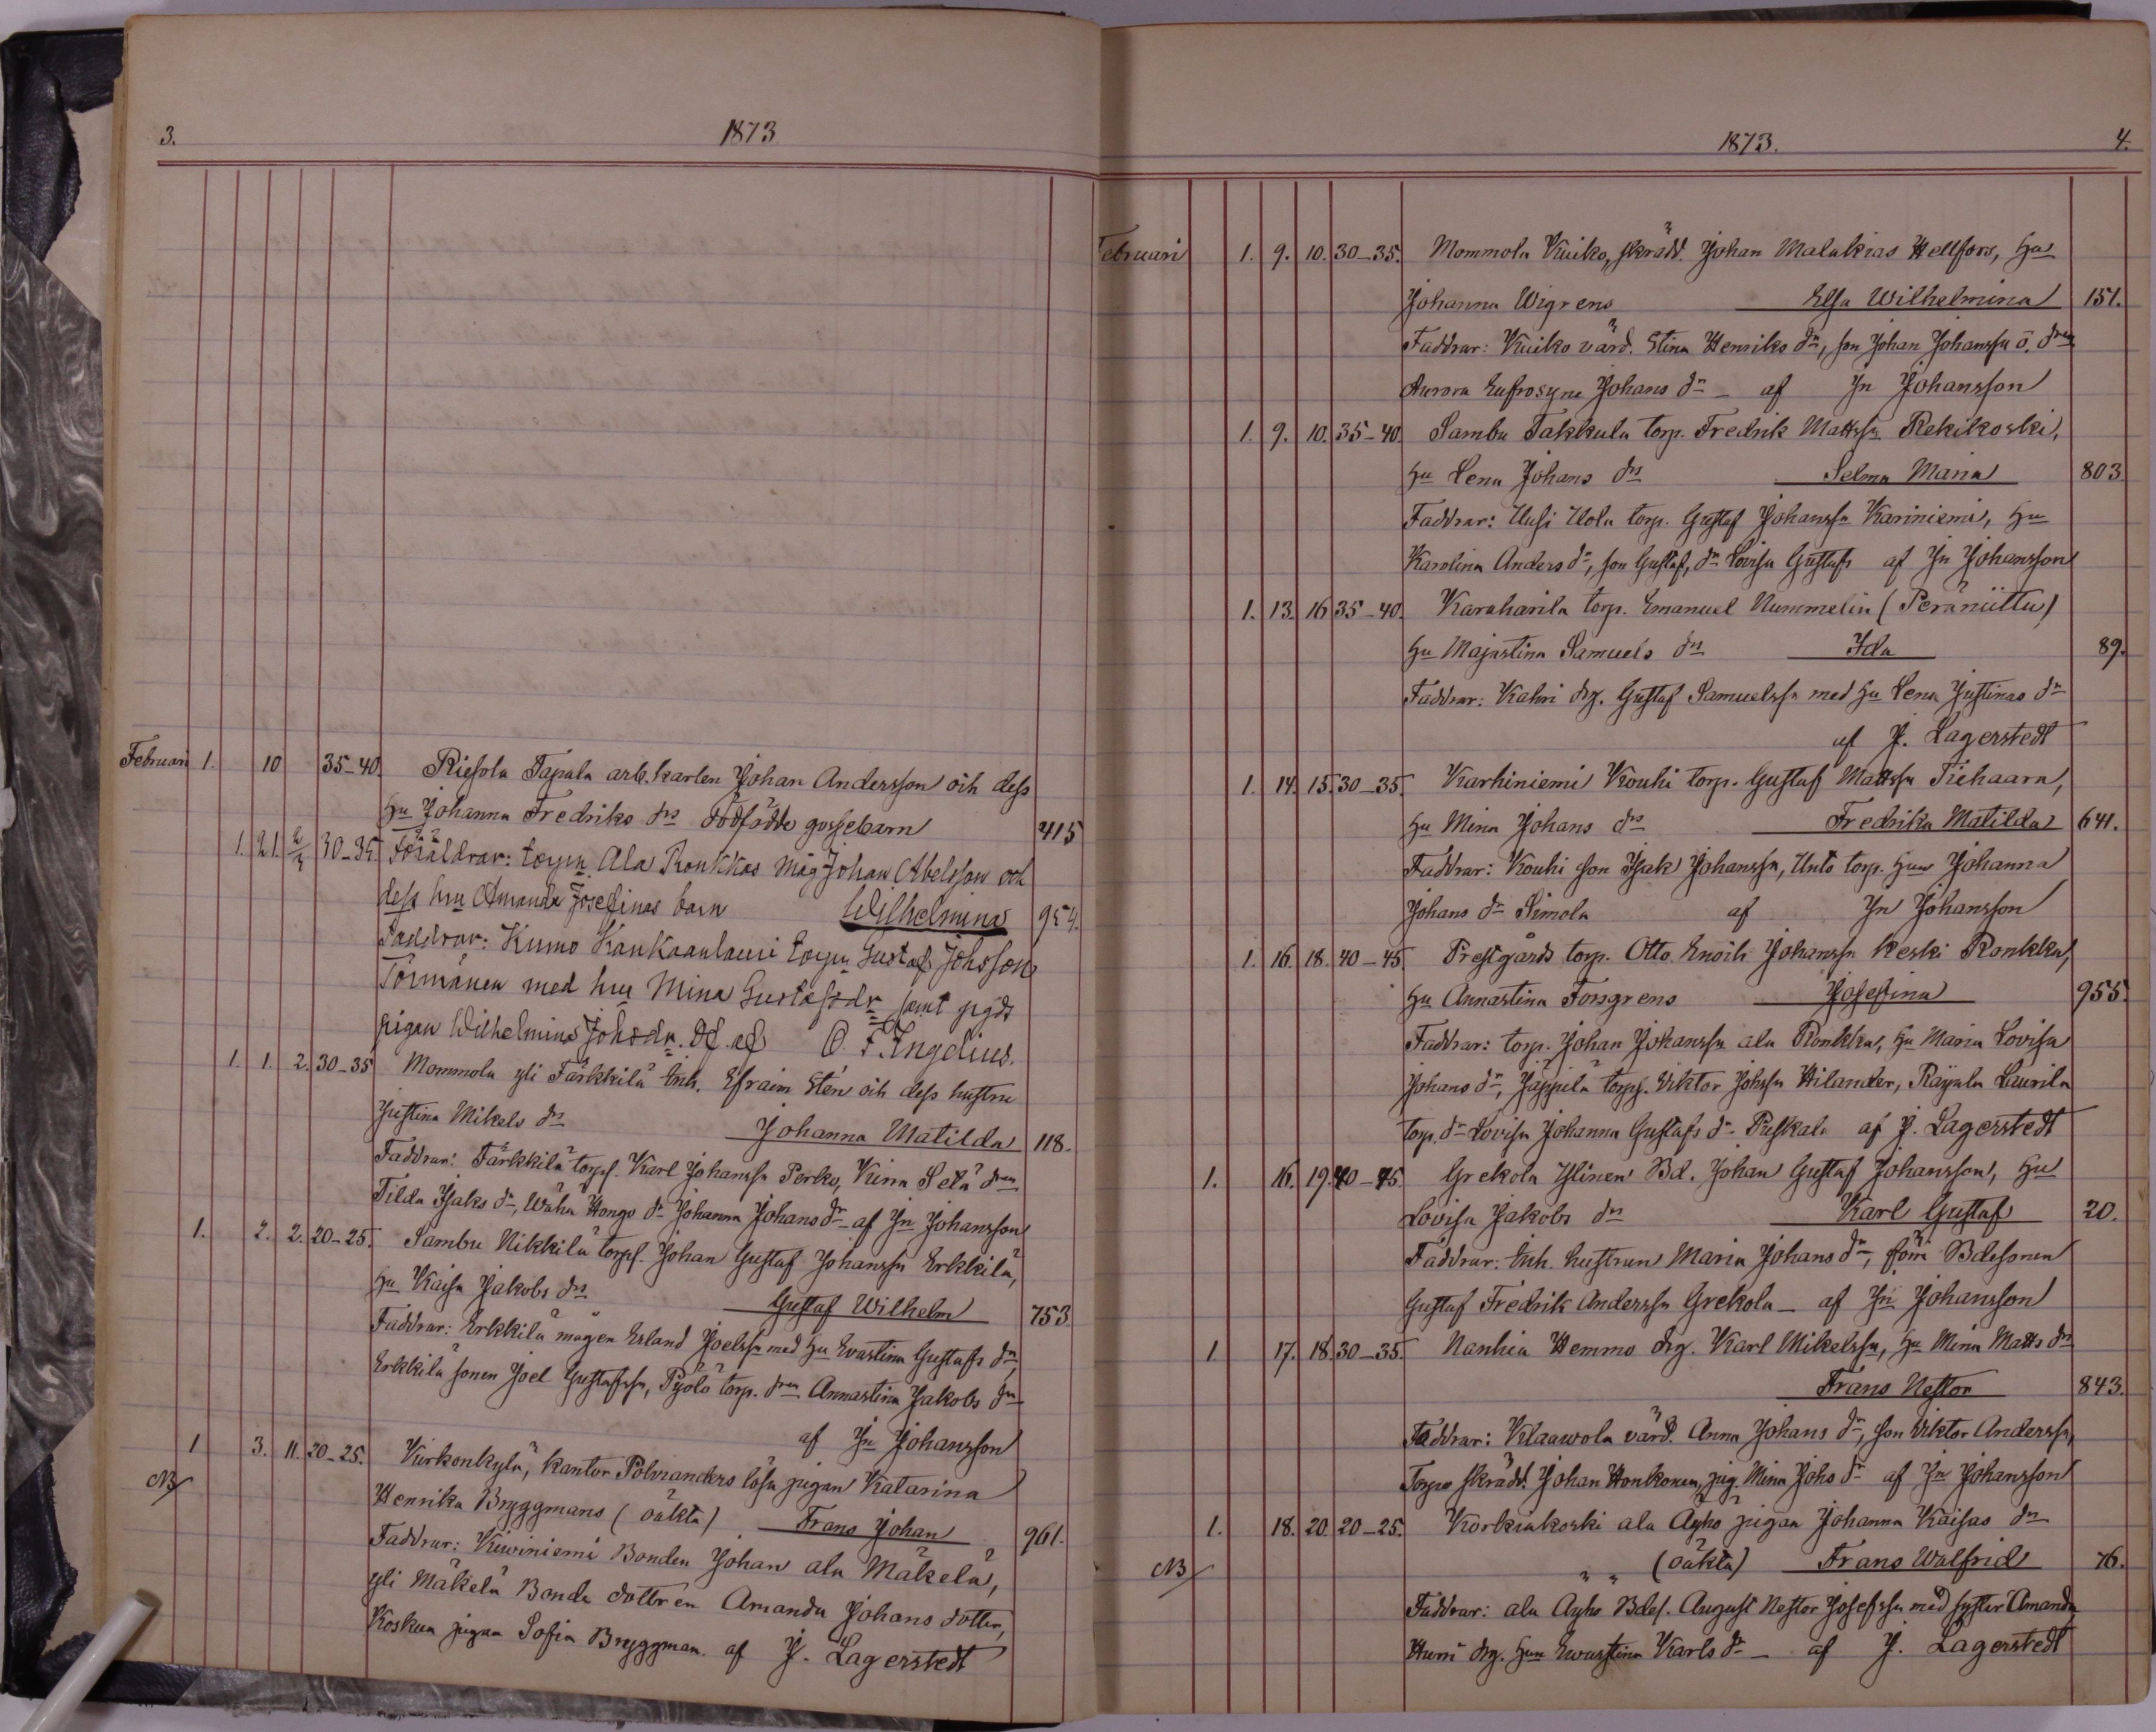 3.
1873
Februari 1. 10 35-40. Riesola Tapala arb.karlen Johan Andersson och dess
hu Johanna Fredriks drs dödfödde gossebarn 415
1. 21. 2/2 30-35. Föräldrar: torpn Ala Ronkkas måg Johan Abelsson och
dess hru Amanda Josefinas barn Wilhelmina 954.
Faddrar: Kumo Kankaanlauri torpn Gustaf Johsson
Törmänen med hru Mina Gustafsdr samt
pigan Wilhelmina Johsdr. af O. F. Ingelius.
1. 1. 2. 30-35 Mommola yli Tärkkilä inh. Efraim Stén och dess hustru
Justina Mikels drs Johanna Matilda 118.
Faddrar: Tärkkilä torps. Karl Johanssn Perko, Kina Selä dren
Tilda Isaks dr, Wähä Hongo dr Johanna Johans dr af Jn Johansson
1. 2. 2. 20-25. Sambu Nikkilä torps. Johan Gustaf Johanssn Erkkilä,
hu Kaisa Jakobs drs Gustaf Wilhelm 753
Faddrar: Erkkilä mågen Erland Joelssn med hu Evastina Gustafs dr,
Erkkilä sonen Joel Gustafssn, Pyölö torp. dren Annastina Jakobs dr
af Jn Johansson
1 3. 11. 20-25. Kurkonkylä, kantor Polvianders lösa pigan Katarina
NB
Henrika Bryggmans (oäkta) Frans Johan 961.
Faddrar: Kiwiniemi Bonden Johan ala Mäkelä,
yli Mäkelä Bonde dottren Amanda Johans dotter,
Koskua pigan Sofia Bryggman. af J. Lagerstedt
1873.
4.
Februari 1. 9. 10. 30-35. Mommola Kuiko, skrädd. Johan Malakias Hellfors, hu
Johanna Wigrens Elsa Wilhelmina 151.
Faddrar: Kuiko värd. Stina Henriks dr, son Johan Johanssn o. dren
Aurora Eufrosyne Johans dr - af Jn Johansson
1. 9. 10. 35-40. Sambu Takkula torp. Fredrik Mattssn Rekikoski,
hu Lena Johans drs Selma Maria 803
Faddrar: Uusi Uola torp. Gustaf Johanssn Kariniemi, hu
Karolina Anders dr, son Gustaf, dr Lovisa Gustafs af Jn Johansson
1. 13. 16 35-40. Karaharila torp. Emanuel Nummelin (Peräniittu)
hu Majastina Samuels drs Ida 89.
Faddrar: Kahri drg. Gustaf Samuelssn med hu Lena Justinas dr
af J. Lagerstedt
1. 14. 15. 30-35. Karhiniemi Kouhi torp. Gustaf Mattssn Tiehaara,
hu Mina Johans drs Fredrika Matilda 641.
Faddrar: Kouhi son Isak Johanssn, Unto torp. hun Johanna
Johans dr Simola af Jn Johansson
1. 16. 18. 40-45. Prestgårds torp. Otto Enoch Johanssn Keski Ronkka,
hu Annastina Forsgrens Josefina 955
Faddrar: torp. Johan Johanssn ala Ronkka, hu Maria Lovisa
Johans dr, Jäppilä torps. Viktor Johssn Hilander, Raijala Laurila
torp. dr Lovisa Johanna Gustafs dr Puskala af J. Lagerstedt
1. 16. 19. 40-45. Grekola Ylinen Bd. Johan Gustaf Johansson, hu
Lovisa Jakobs drs Karl Gustaf 20.
Faddrar: inh. hustrun Maria Johans dr, Bdesonen
Gustaf Fredrik Anderssn Grekola - af Jn Johansson
1 17. 18. 30-35. Nanhia Hemmo drg. Karl Mikelssn, hu Mina Matts drs
Frans Nestor 843.
Faddrar: Klaawola värd. Anna Johans dr, son Viktor Anderssn,
Torpo skrädd. Johan Honkonen, pig. Mina Johs dr af Jn Johansson
1. 18. 20. 20-25. Korkiakoski ala Äyhö pigan Johanna Kaisas drs
NB
" " (oäkta) Frans Walfrid 76.
Faddrar: ala Äyhö Bdes. August Nestor Josefssn med syster Amanda
Hurri drg. hun Ewastina Karls dr - af J. Lagerstedt